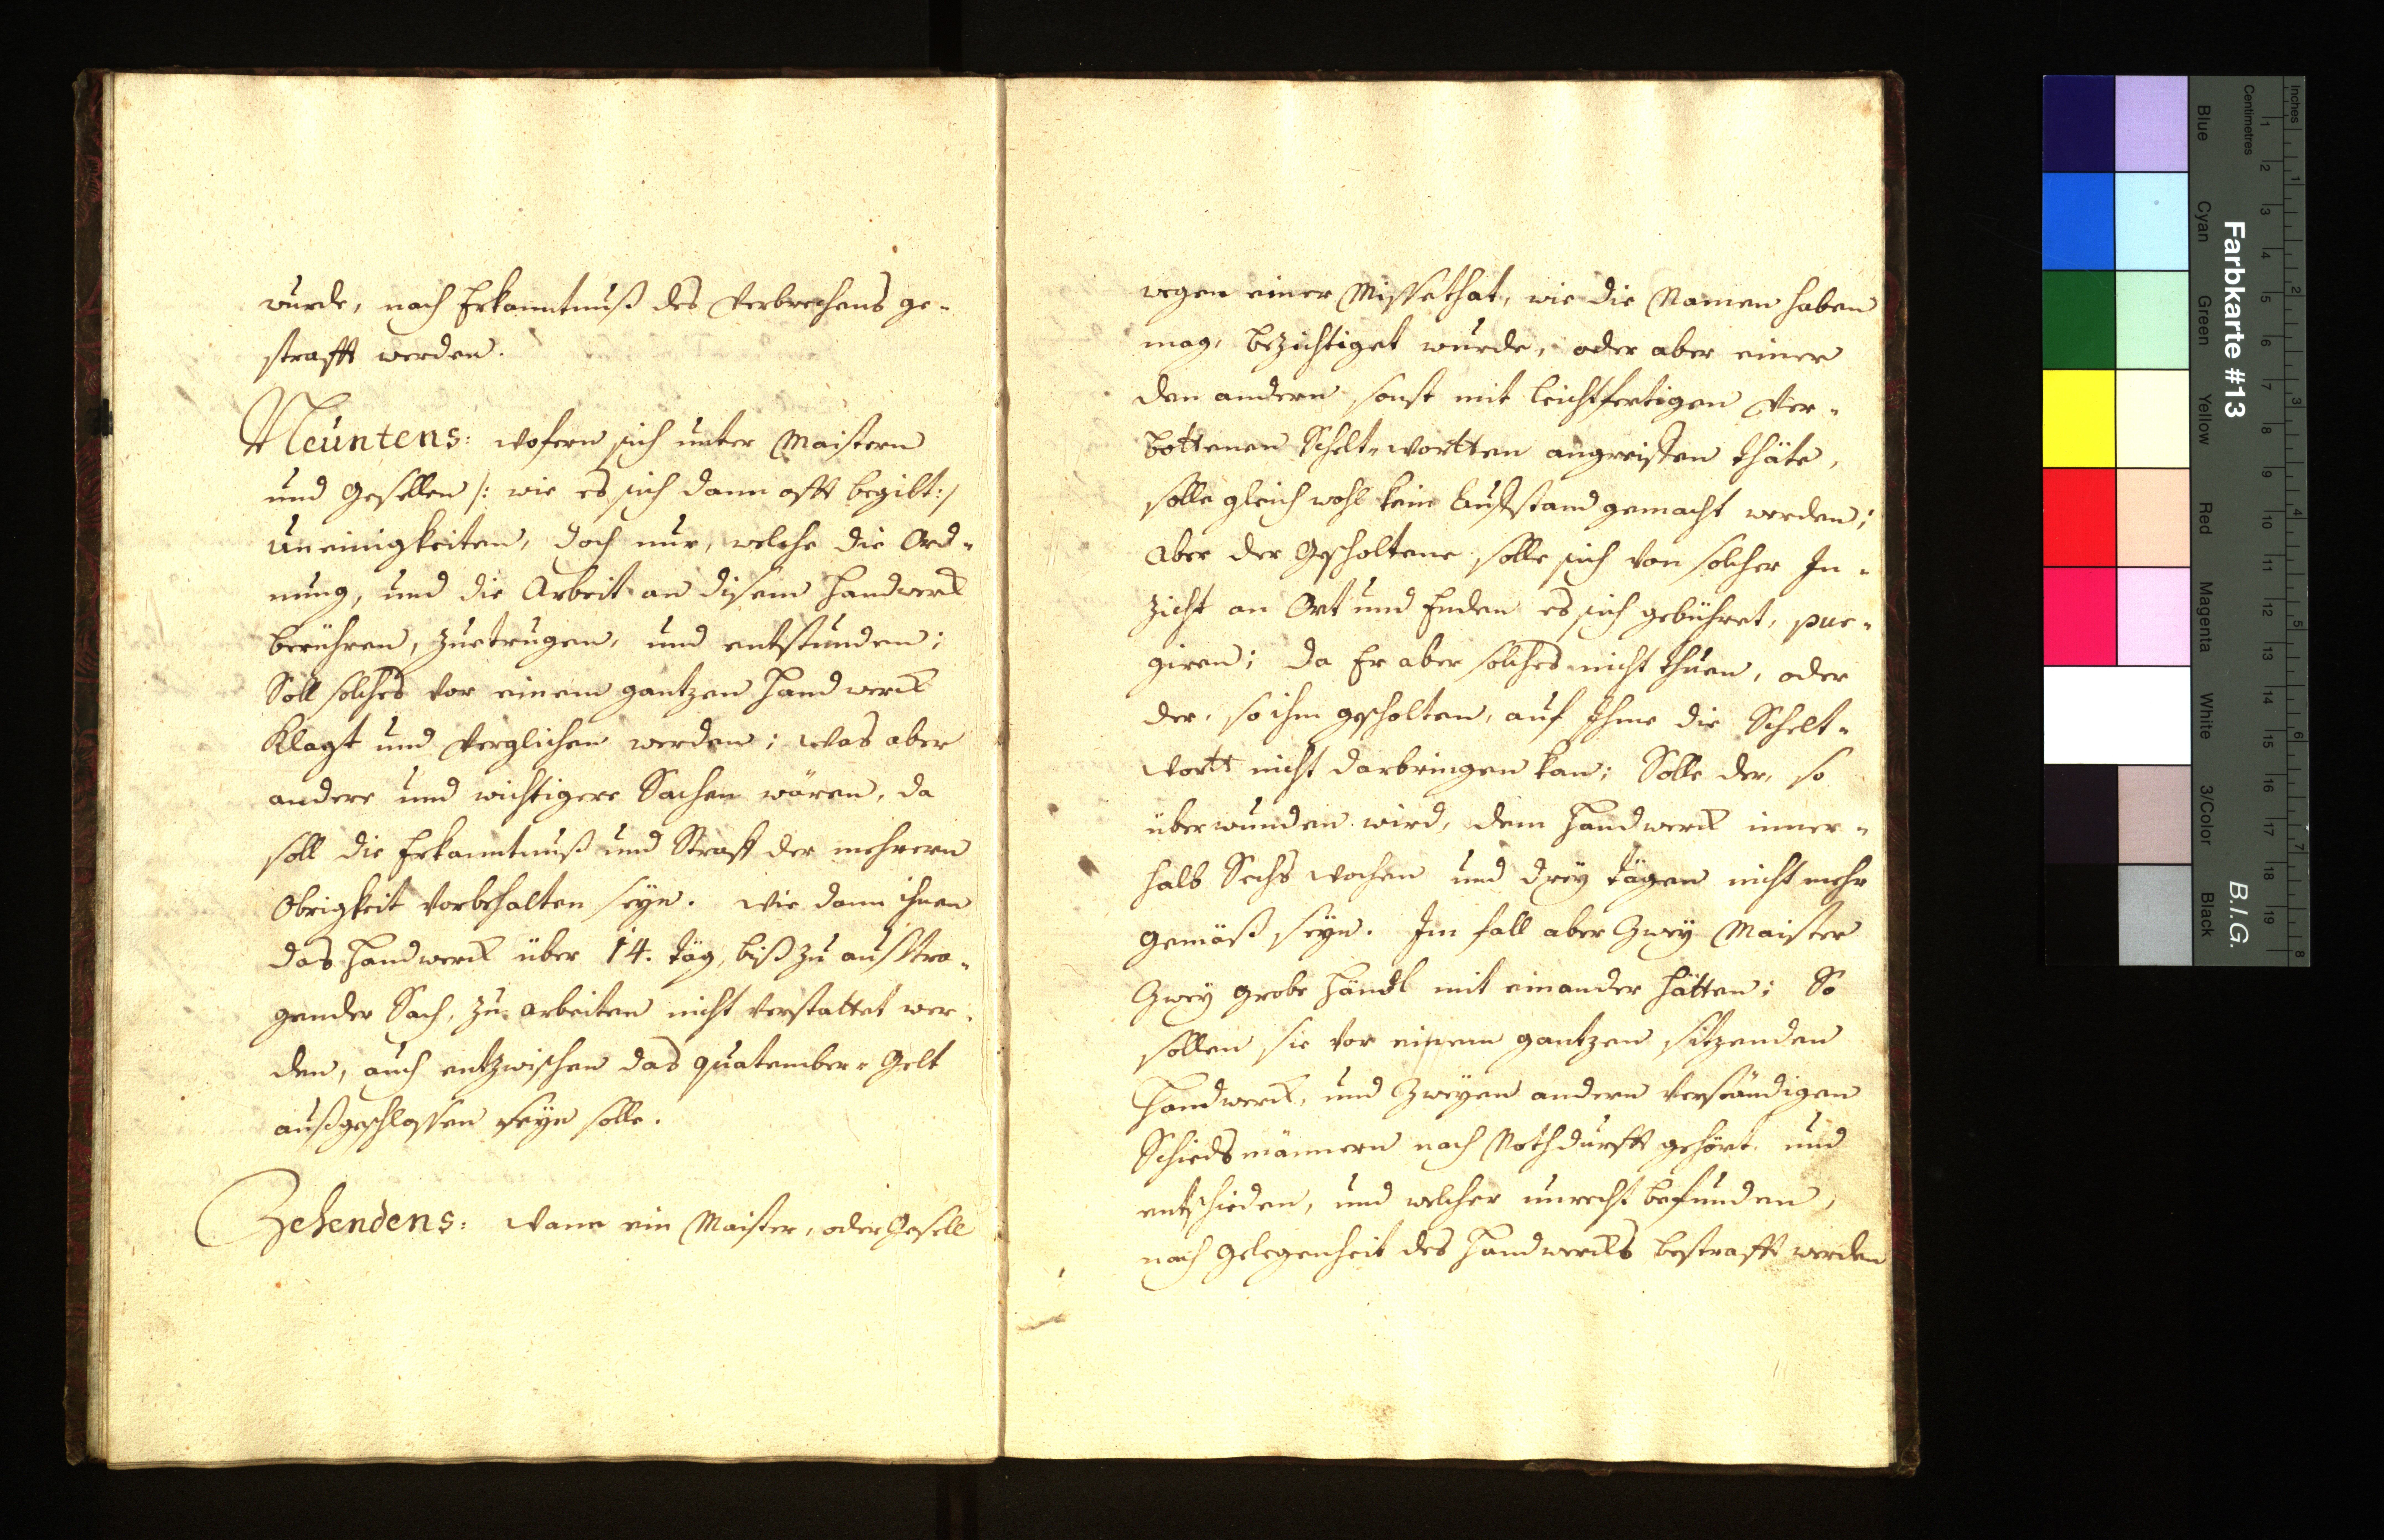 wurde, nach Erkanntnuß des Verbrechens ge-
strafft werden.
Neüntens: Wofern sich unter Maistern
und Gesellen /: wie es sich dann offt begibt :/
Uneinigkeiten, doch nur, welche die Ord-
nung, und die Arbeit an disem Handwerck
berühren, zuetrugen, und entstunden;
Soll solches vor einem gantzen Handwerck
Klagt und verglichen werden; Was aber
andere und wichtigere Sachen wären, da
soll die Erkanntnuß und Straff der mehrern
Obrigkeit vorbehalten seyn. Wie dann ihnen
das Handwerck über 14. täg, biß zu außtra-
gender Sach, zu arbeiten nicht verstattet wer-
den, auch entzwischen das quatember-Gelt
außgeschlossen seyn solle.
Zehendens: Wann ein Maister, oder Gesell
wegen einer Missethat, wie die Namen haben
mag, bezichtiget wurde, oder aber einer
den andern sonst mit leichtfertigen Ver-
bottenen Schelt-Wortten angreiffen thäte,
solle gleich wohl kein Auffstand gemacht werden;
Aber der Gescholtene solle sich von solcher In-
zicht an Ort und Enden es sich gebühret, pur-
giren; da Er aber solches nicht thuen, oder
der, so ihm gescholten, auf Ihme die Schelt-
Wortt nicht darbringen kan; Solle der, so
überwunden wird, dem Handwerck inner-
halb Sechs Wochen und drey tägen nicht mehr
gemäß seyn. Im fall aber Zwey Maister
Zwey grobe Händl mit einander hätten; So
sollen sie vor einem gantzen sitzenden
Handwerck, und Zweyen andern verständigen
Schiedsmännern nach Nothdurfft gehört, und
entschieden, und welcher unrecht befunden,
nach Gelegenheit des Handwercks bestrafft werden
Farbkarte #13
B.I.G.
Inches
1 2 3 4 5 6 7 8
Centimetres
1 2 3 4 5 6 7 8 9 10 11 12 13 14 15 16 17 18 19
Blue
Cyan
Green
Yellow
Red
Magenta
White
3/Color
Black